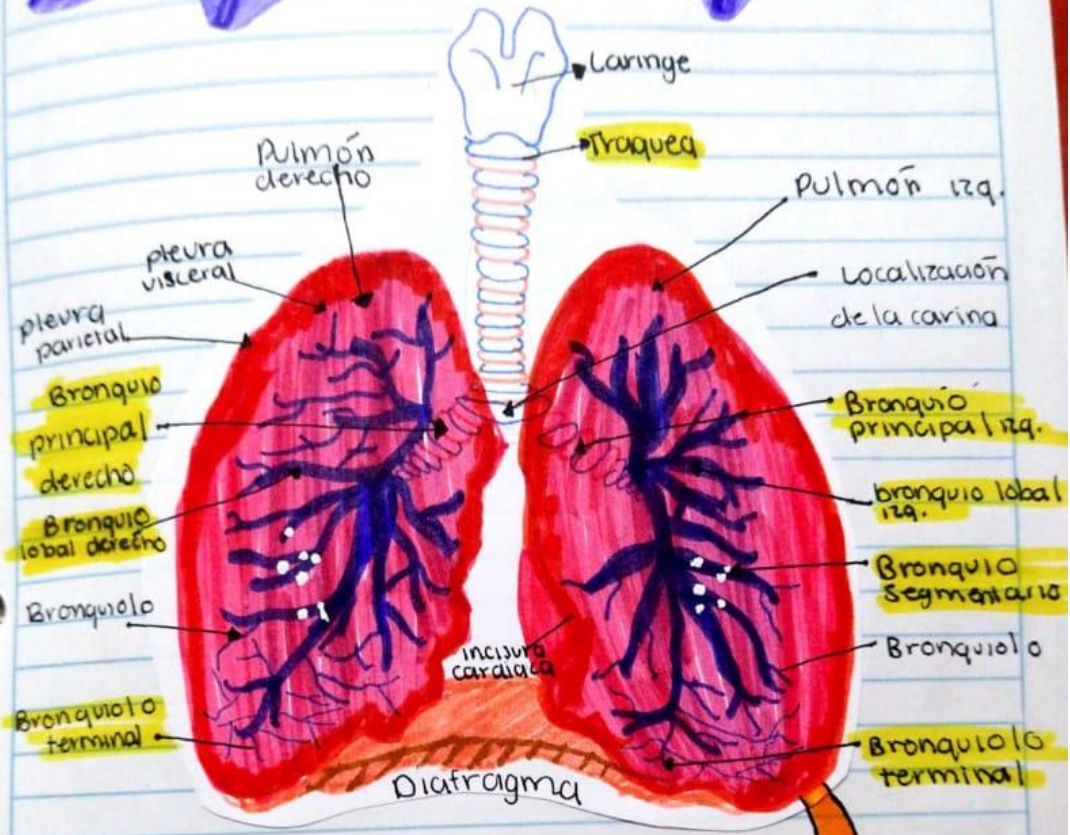 Laringe
Traquea
Pulmón
derecho
Pulmón izq.
pleura
visceral
Localización
de la carina
pleura
parietal
Bronquio
principal
derecho
Bronquio
principal izq.
Bronquio
lobal derecho
bronquio lobal
izq.
Bronquio
segmentario
Bronquiolo
Bronquiolo
incisura
cardiaca
Bronquiolo
terminal
Bronquiolo
terminal
Diafragma